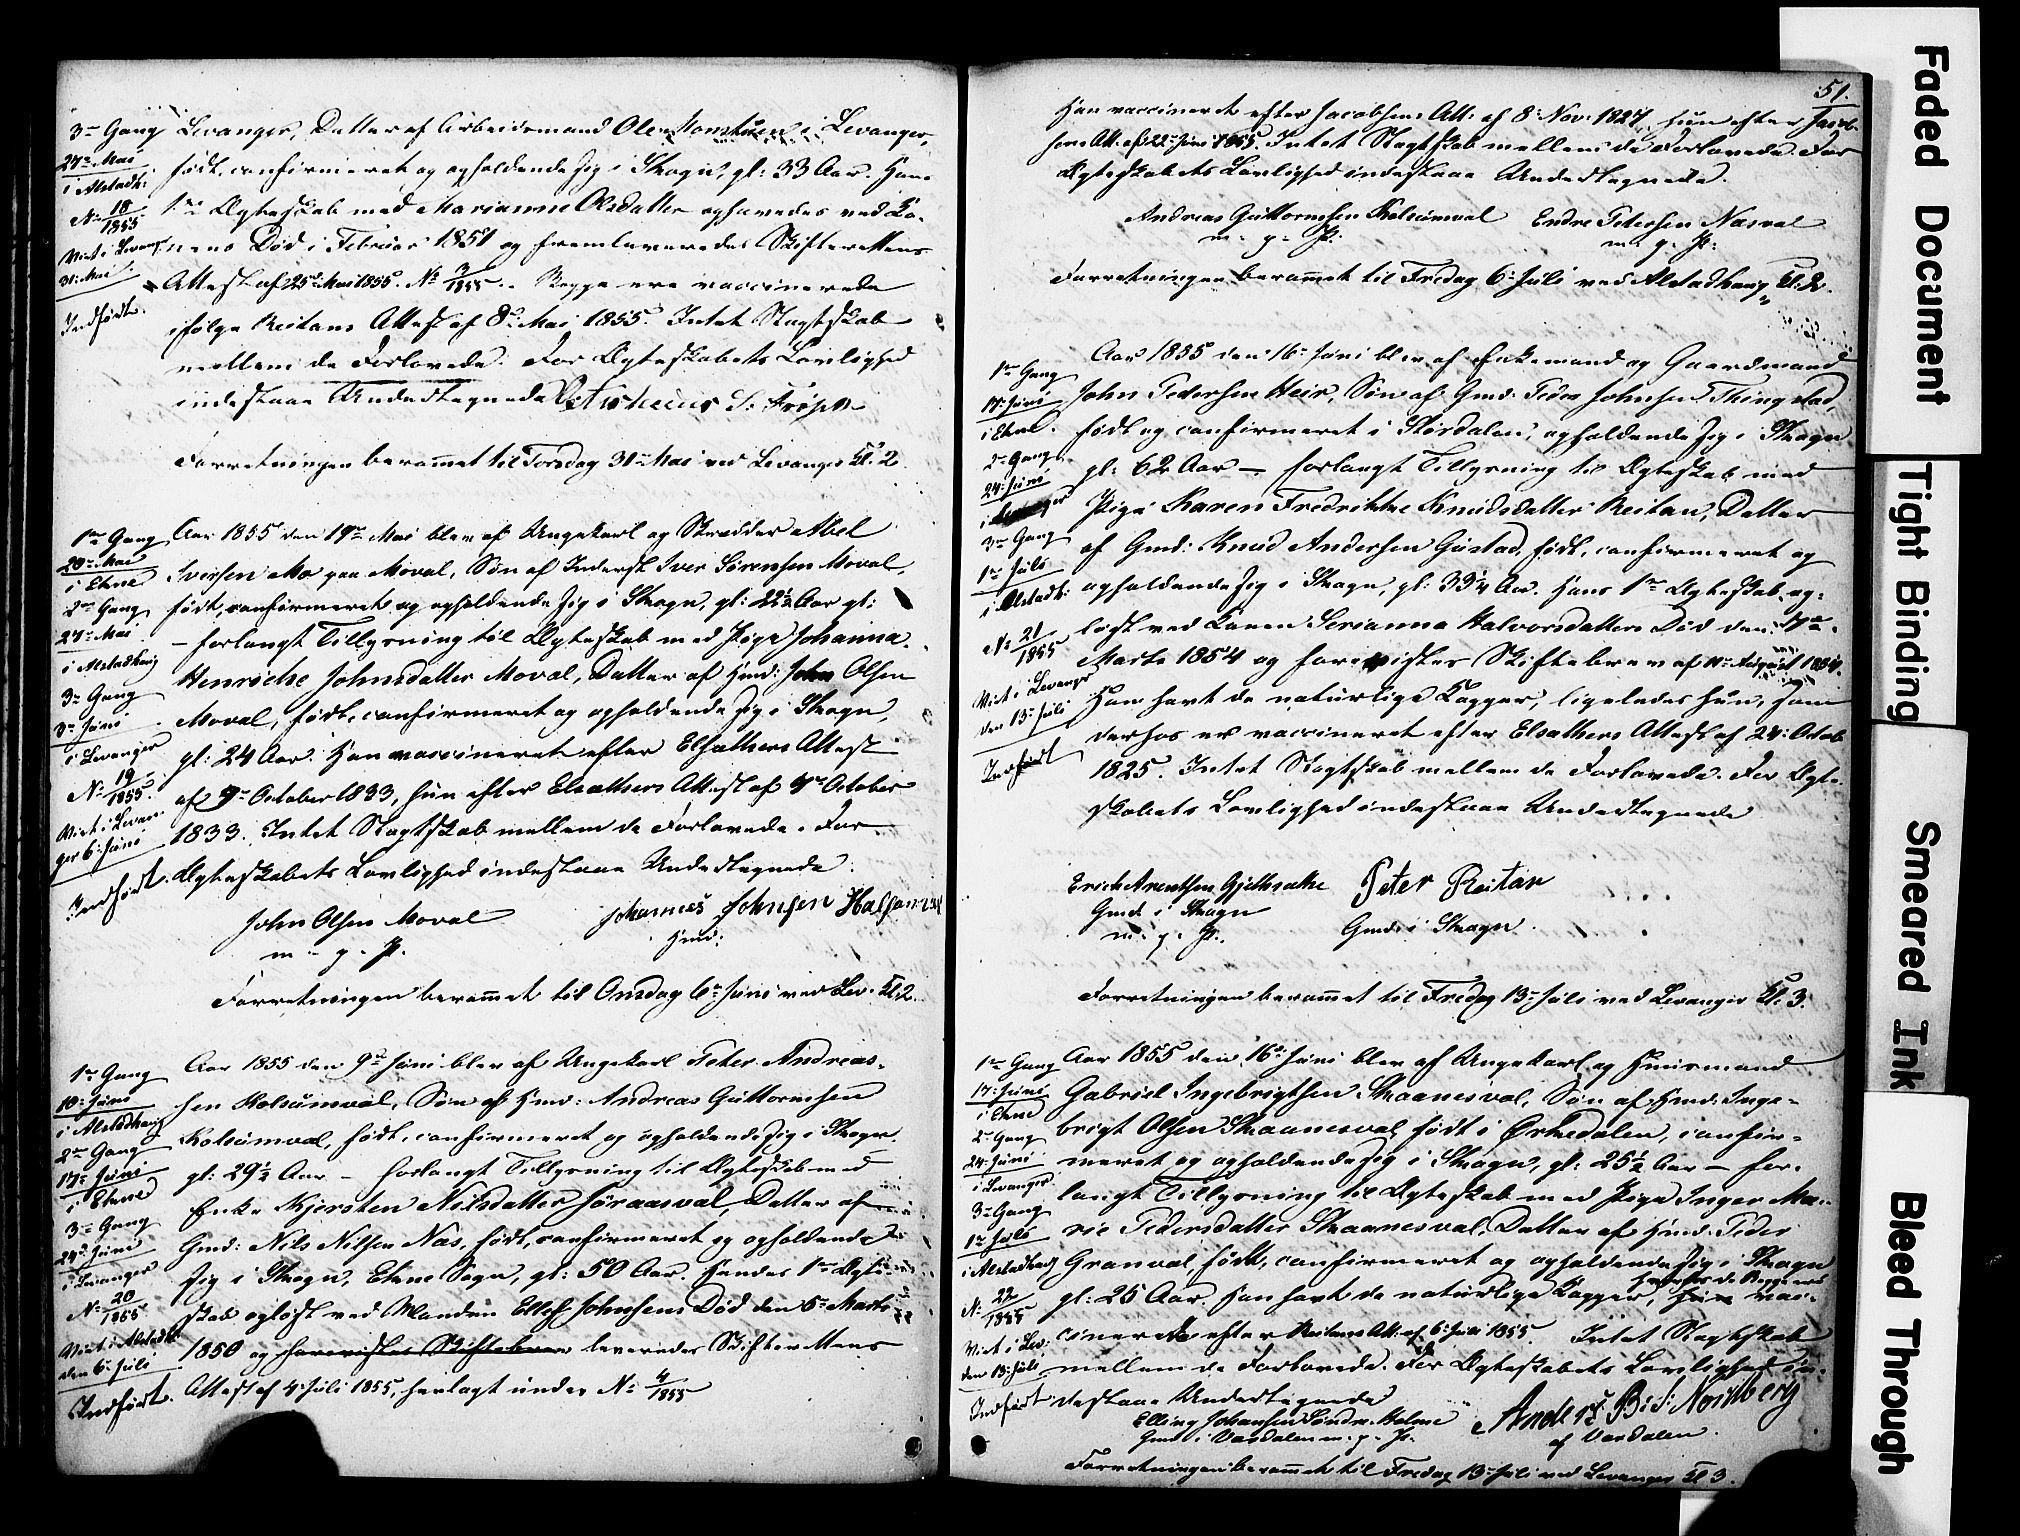 3die Gang
27de Mai
i Alstadh:
No 18/1855
Viet i Levang:
31: Mai
Indført.
Levanger, Datter af Arbeidsmand Ole Monstuen i Levanger,
født, confirmeret og opholdende sig i Skogn, gl: 33 Aar. Hans
1ste Ægteskab med Marianne Olsdatter ophævedes ved Ko-
nens Død i Februar 1851 og fremleveredes Skifterettens
Attest af 25de Mai 1855. No 3/1855. Begge ere vaccinerede
ifølge Reitans Attest af 8de Mai 1855. Intet Slægtskab
mellem de Forlovede. For Ægteskabets Lovlighed
indestaae Undertegnede
Forretningen berammet til Torsdag 31te Mai ved Levanger Kl. 2.
1ste Gang
20de Mai
i Ekne
2den Gang
27de Mai
i Alstadhaug
3die Gang
3die Juni
i Levanger
No 19/1855.
Viet i Levan-
ger 6: Juni
Indført.
Aar 1855 den 19de Mai blev af Ungekarl og Skrædder Abel
Iversen Mo paa Moval, Søn af Inderst Iver Sørensen Moval,
født, confirmeret og opholdende sig i Skogn, gl: 22½ Aar gl:
- forlangt Tillysning til Ægteskab med Pige Johanna
Henriche Johnsdatter Moval, Datter af Hmd: John Olsen
Moval, født, confirmeret og opholdende sig i Skogn,
gl: 24 Aar. Han vaccineret efter Elsæthers Attest
af October 1833, hun efter Elsæthers Attest af October
1833. Intet Slægtskab mellem de Forlovede. For
Ægteskabets Lovlighed indestaae Undertegnede.
John Olsen Moval
m. p. P.
Johannes Johnsen
Hmd:
Forretningen berammet til Onsdag 6te Juni ved Lev. Kl 2.
1ste Gang
10: Juni
i Alstadhaug
2den Gang
17de Juni
i Ekne
3die Gang
24de Juni
i Levanger
No 20/1855
Viet i Alstadh:
den 6te Juli
Indført.
Aar 1855 den 9de Juni blev af Ungekarl Peter Andreas-
sen Kolsumval, Søn af Hmd: Andreas Guttormsen
Kolsumval, født, confirmeret og opholdende sig i Skogn
gl: 29½ Aar - forlangt Tillysning til Ægteskab med
Enke Kjersten Nilsdatter Søraasval, Datter af
Gmd: Nils Nilsen Næs, født, confirmeret og opholdende
sig i Skogn, Ekne Sogn, gl: 50 Aar. Hendes 1ste Ægte-
skab opløst ved Manden Ellef Johnsens Død den 6te Marts
1850 og forevistes Skiftebrev leveredes Skifterettens
Attest af 4: Juli 1855, henlagt under No 4/1855
51.
Han vaccineret efter Jacobsens Att. af 8: Nov: 1827, hun efter Jacob-
sens Att. af 22: Juni 1855. Intet Slægtskab mellem de Forlovede. For
Ægteskabets Lovlighed indestaae Undertegnede.
Andreas Guttormsen Kolsumval
m. p. P.
Endre Petersen Næsval
m. p. P.
Forretningen berammet til Fredag 6: Juli ved Alstadhaug Kl. 2.
1ste Gang
17: Juni
i Ekne.
2: Gang
24: Juni
i Levanger
3die Gang
1ste Juli
i Alstadh:
No 21/1855
Viet i Levanger
den 13: Juli
Indført
Aar 1855 den 16de Juni blev af Enkemand og Gaardmand
John Pedersen Heir, Søn af Gmd: Peder Johnsen Thingstad,
født og confirmeret i Størdalen, opholdende sig i Skogn
gl: 62 Aar - forlangt Tillysning til Ægteskab med
Pige Karen Fredrikke Knudsdatter Reitan, Datter
af Gmd: Knud Andersen Gustad, født, confirmeret og
opholdende sig i Skogn, gl: 33¼ Aar. Hans 1ste Ægteskab op-
løst ved Konen Serianna Halvorsdatters Død den 17de
Marts 1854 og forevistes Skiftebrev af 11te August 1854.
Han havt de naturlige Kopper, ligeledes hun, som
derhos er vaccineret efter Elsæthers Attest af 24: Octob
1825. Intet Slægtskab mellem de Forlovede. For Ægte-
skabets Lovlighed indestaae Undertegnede
Erich Arentsen
Gmd i Skogn
m. p. P.
Peter Reitan
Gmd: i Skogn.
Forretningen berammet til Fredag 13: Juli ved Levanger Kl. 3.
1ste Gang
17: Juni
i Ekne
2: Gang
24: Juni
i Levanger
3die Gang
1ste Juli
i Alstadhaug
No 22/1855
Viet i Lev:
den 13: Juli
Indført
Aar 1855 den 16de Juni blev af Ungekarl og Huusmand
Gabriel Ingebrigtsen Skaanesval, Søn af Hmd: Inge-
brigt Olsen Skaanesval, født i Ørkedalen, confir-
meret og opholdende sig i Skogn, gl: 25½ Aar - for-
langt Tillysning til Ægteskab med Pige Inger Ma-
rie Pedersdatter Skaanesval, Datter af Hmd: Peder
Granval, født, confirmeret og opholdende sig i Skogn
gl: 25 Aar. Han havt de naturlige Kopper, hun vac-
cineret efter Reitans Att. af 6: Juli 1855. Intet Slægtskab
mellem de Forlovede. For Ægteskabets Lovlighed in-
destaae Undertegnede
Elling Johansen Søndre Holme
Gmd i Værdalen m. p. P.
Anders B: S: Nordberg
af Værdalen.
Forretningen berammet til Fredag 13: Juli ved Levanger Kl 3.
Faded Document
Tight Binding
Smeared Ink
Bleed Through